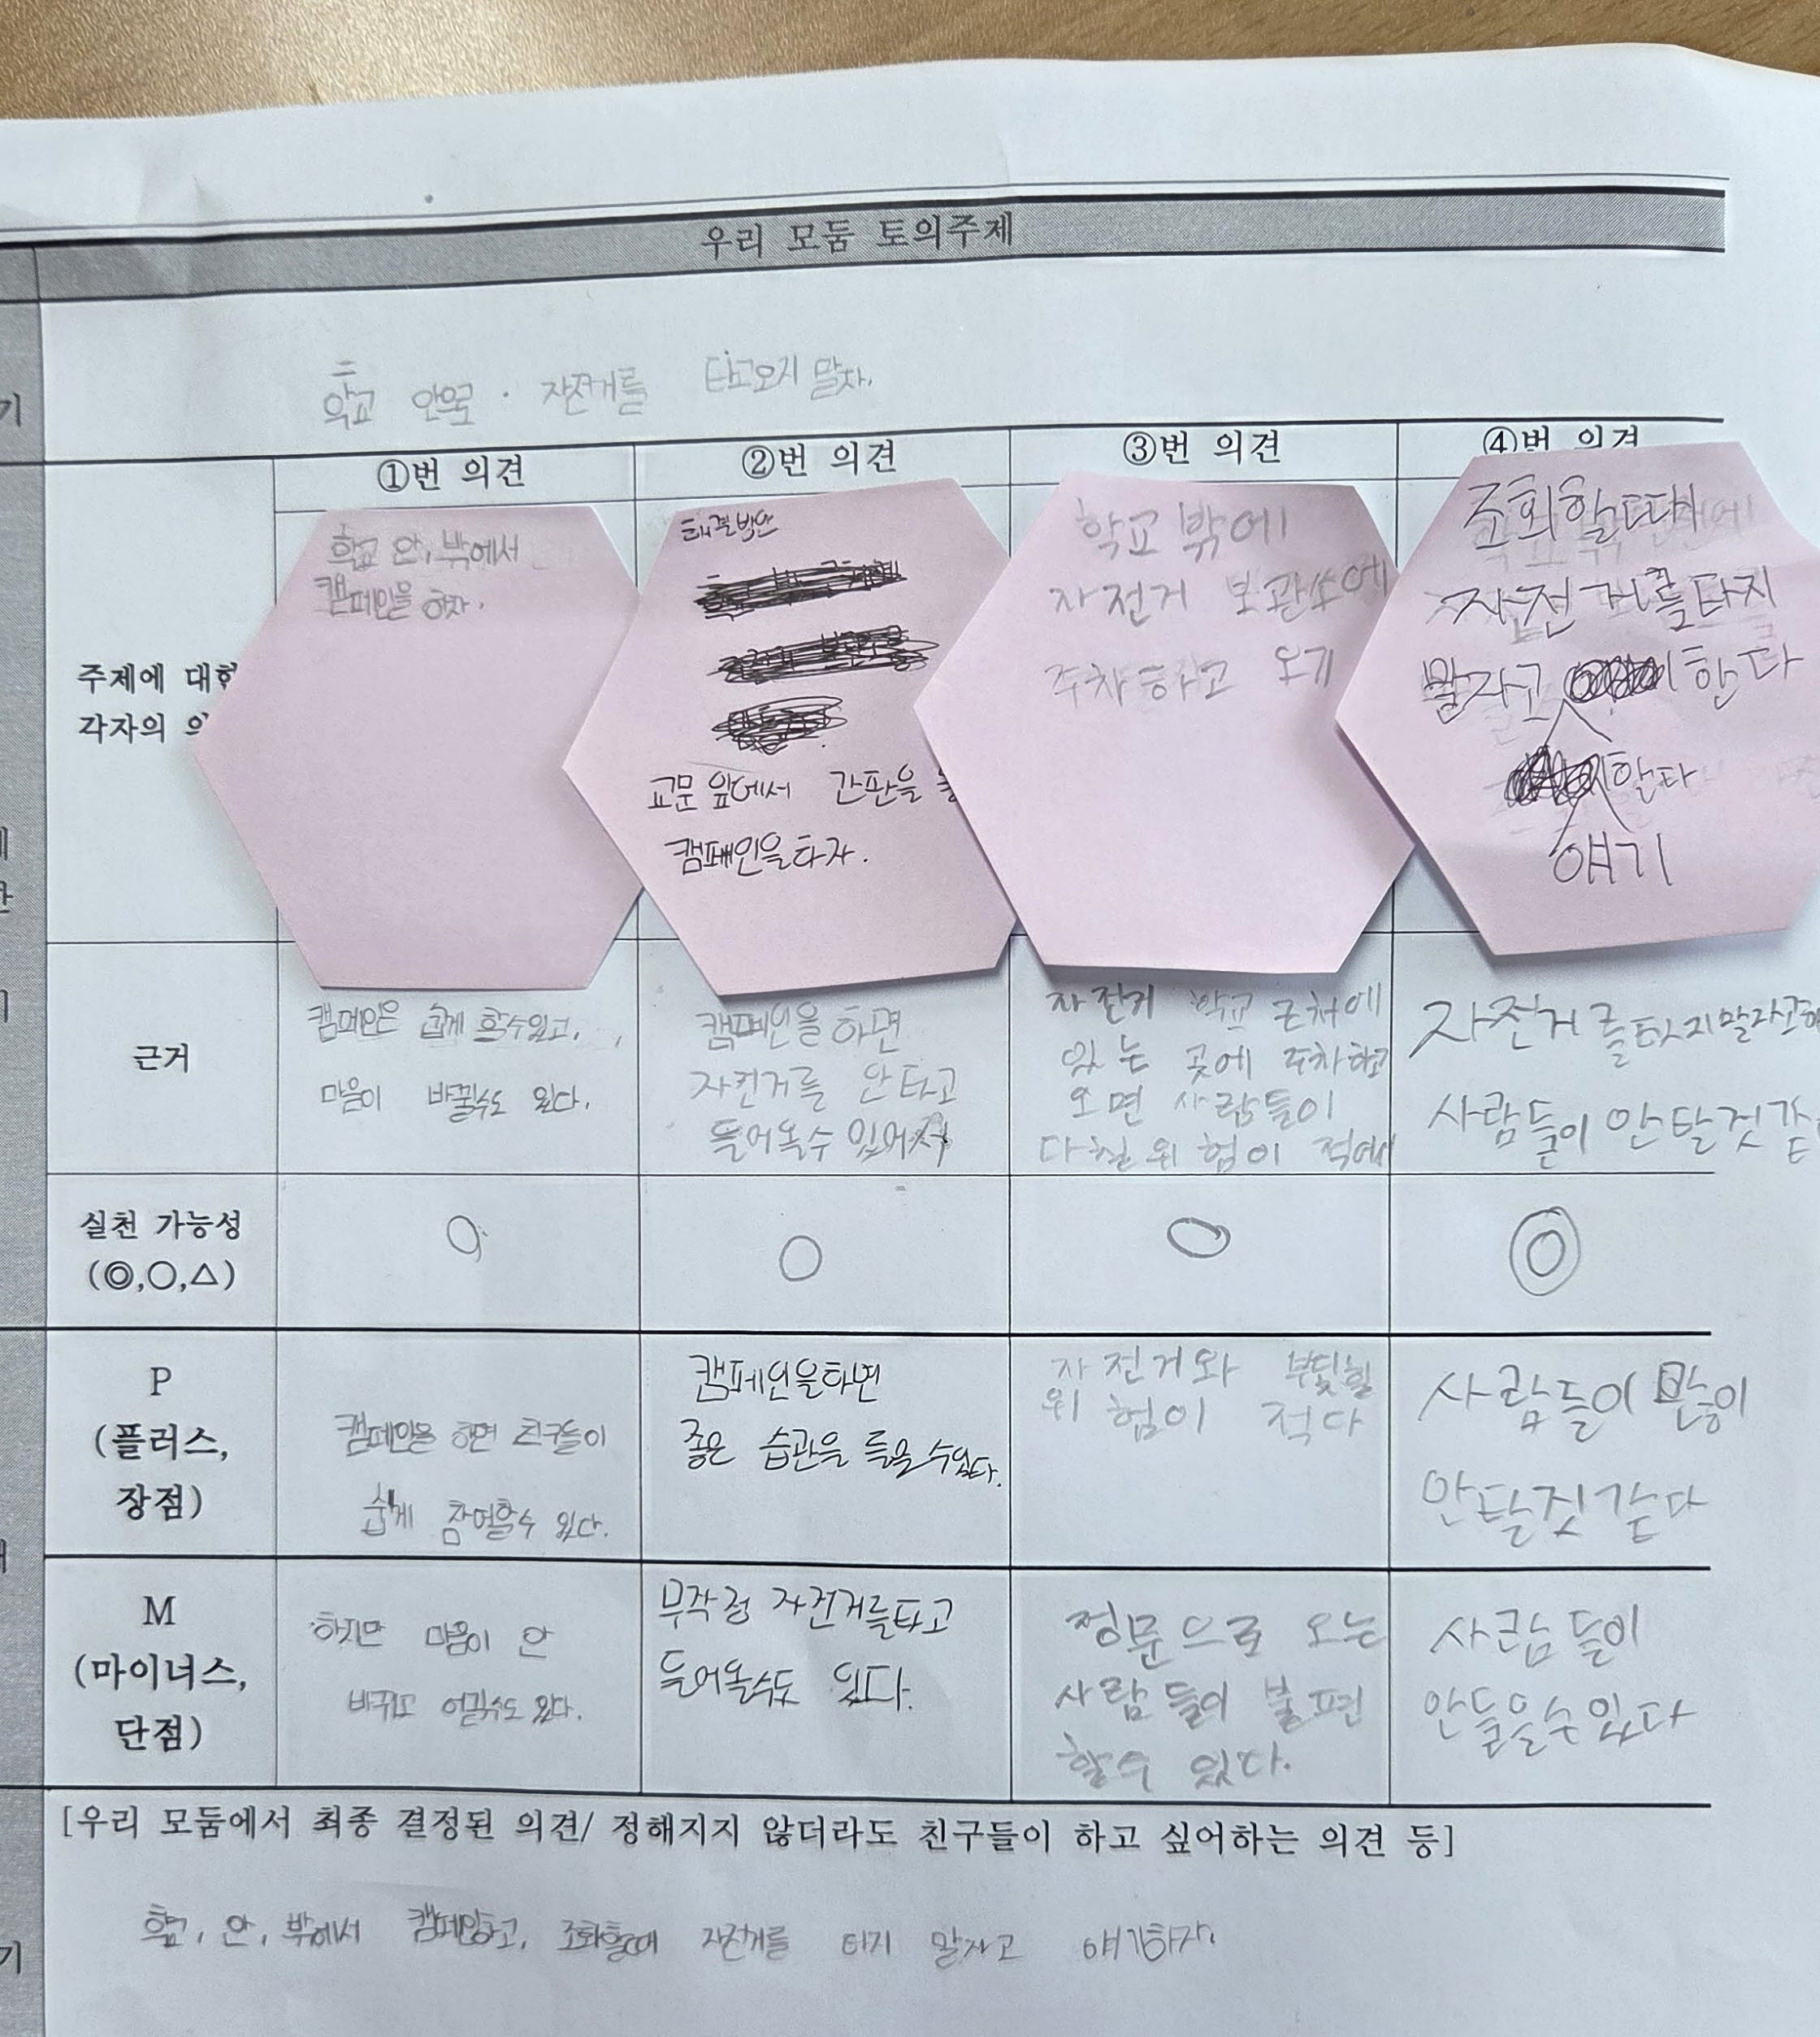 우리 모둠 토의주제
학교 안으로 · 자전거를 타고오지 말자.
①번 의견
②번 의견
③번 의견
④번 의견
주제에 대한
각자의
학교 안, 밖에서
캠페인을 하자.
해결방안
교문 앞에서 간판을
캠페인을하자.
학교 밖에
자전거 보관소에
주차하고 오기
조회할때
자전거를타지
말자고 한다
한다
얘기
근거
캠페인은 쉽게 할수있고,
마음이 바뀔수도 있다.
캠페인을 하면
자전거를 안타고
들어올수 있어서
자전거 학교 근처에
있는 곳에 주차하고
오면 사람들이
다칠 위험이 적에
자전거를타지말자고
사람들이 안탈것 같
실천 가능성
(◎,○,△)
○
○
○
◎
P
(플러스,
장점)
캠페인을 하면 친구들이
쉽게 참여할수 있다.
캠페인을하면
좋은 습관을 들을수있다.
자전거와 부딪힐
위험이 적다
사람들이 많이
안탈것 같다
M
(마이너스,
단점)
하지만 마음이 안
바뀌고 어길수도 있다.
무작정 자전거를타고
들어올수도 있다.
정문으로 오는
사람들이 불편
할수 있다.
사람들이
안들을수있다
[우리 모둠에서 최종 결정된 의견/ 정해지지 않더라도 친구들이 하고 싶어하는 의견 등]
학교, 안, 밖에서 캠페인하고, 조회할때 자전거를 타지 말자고 얘기하자.